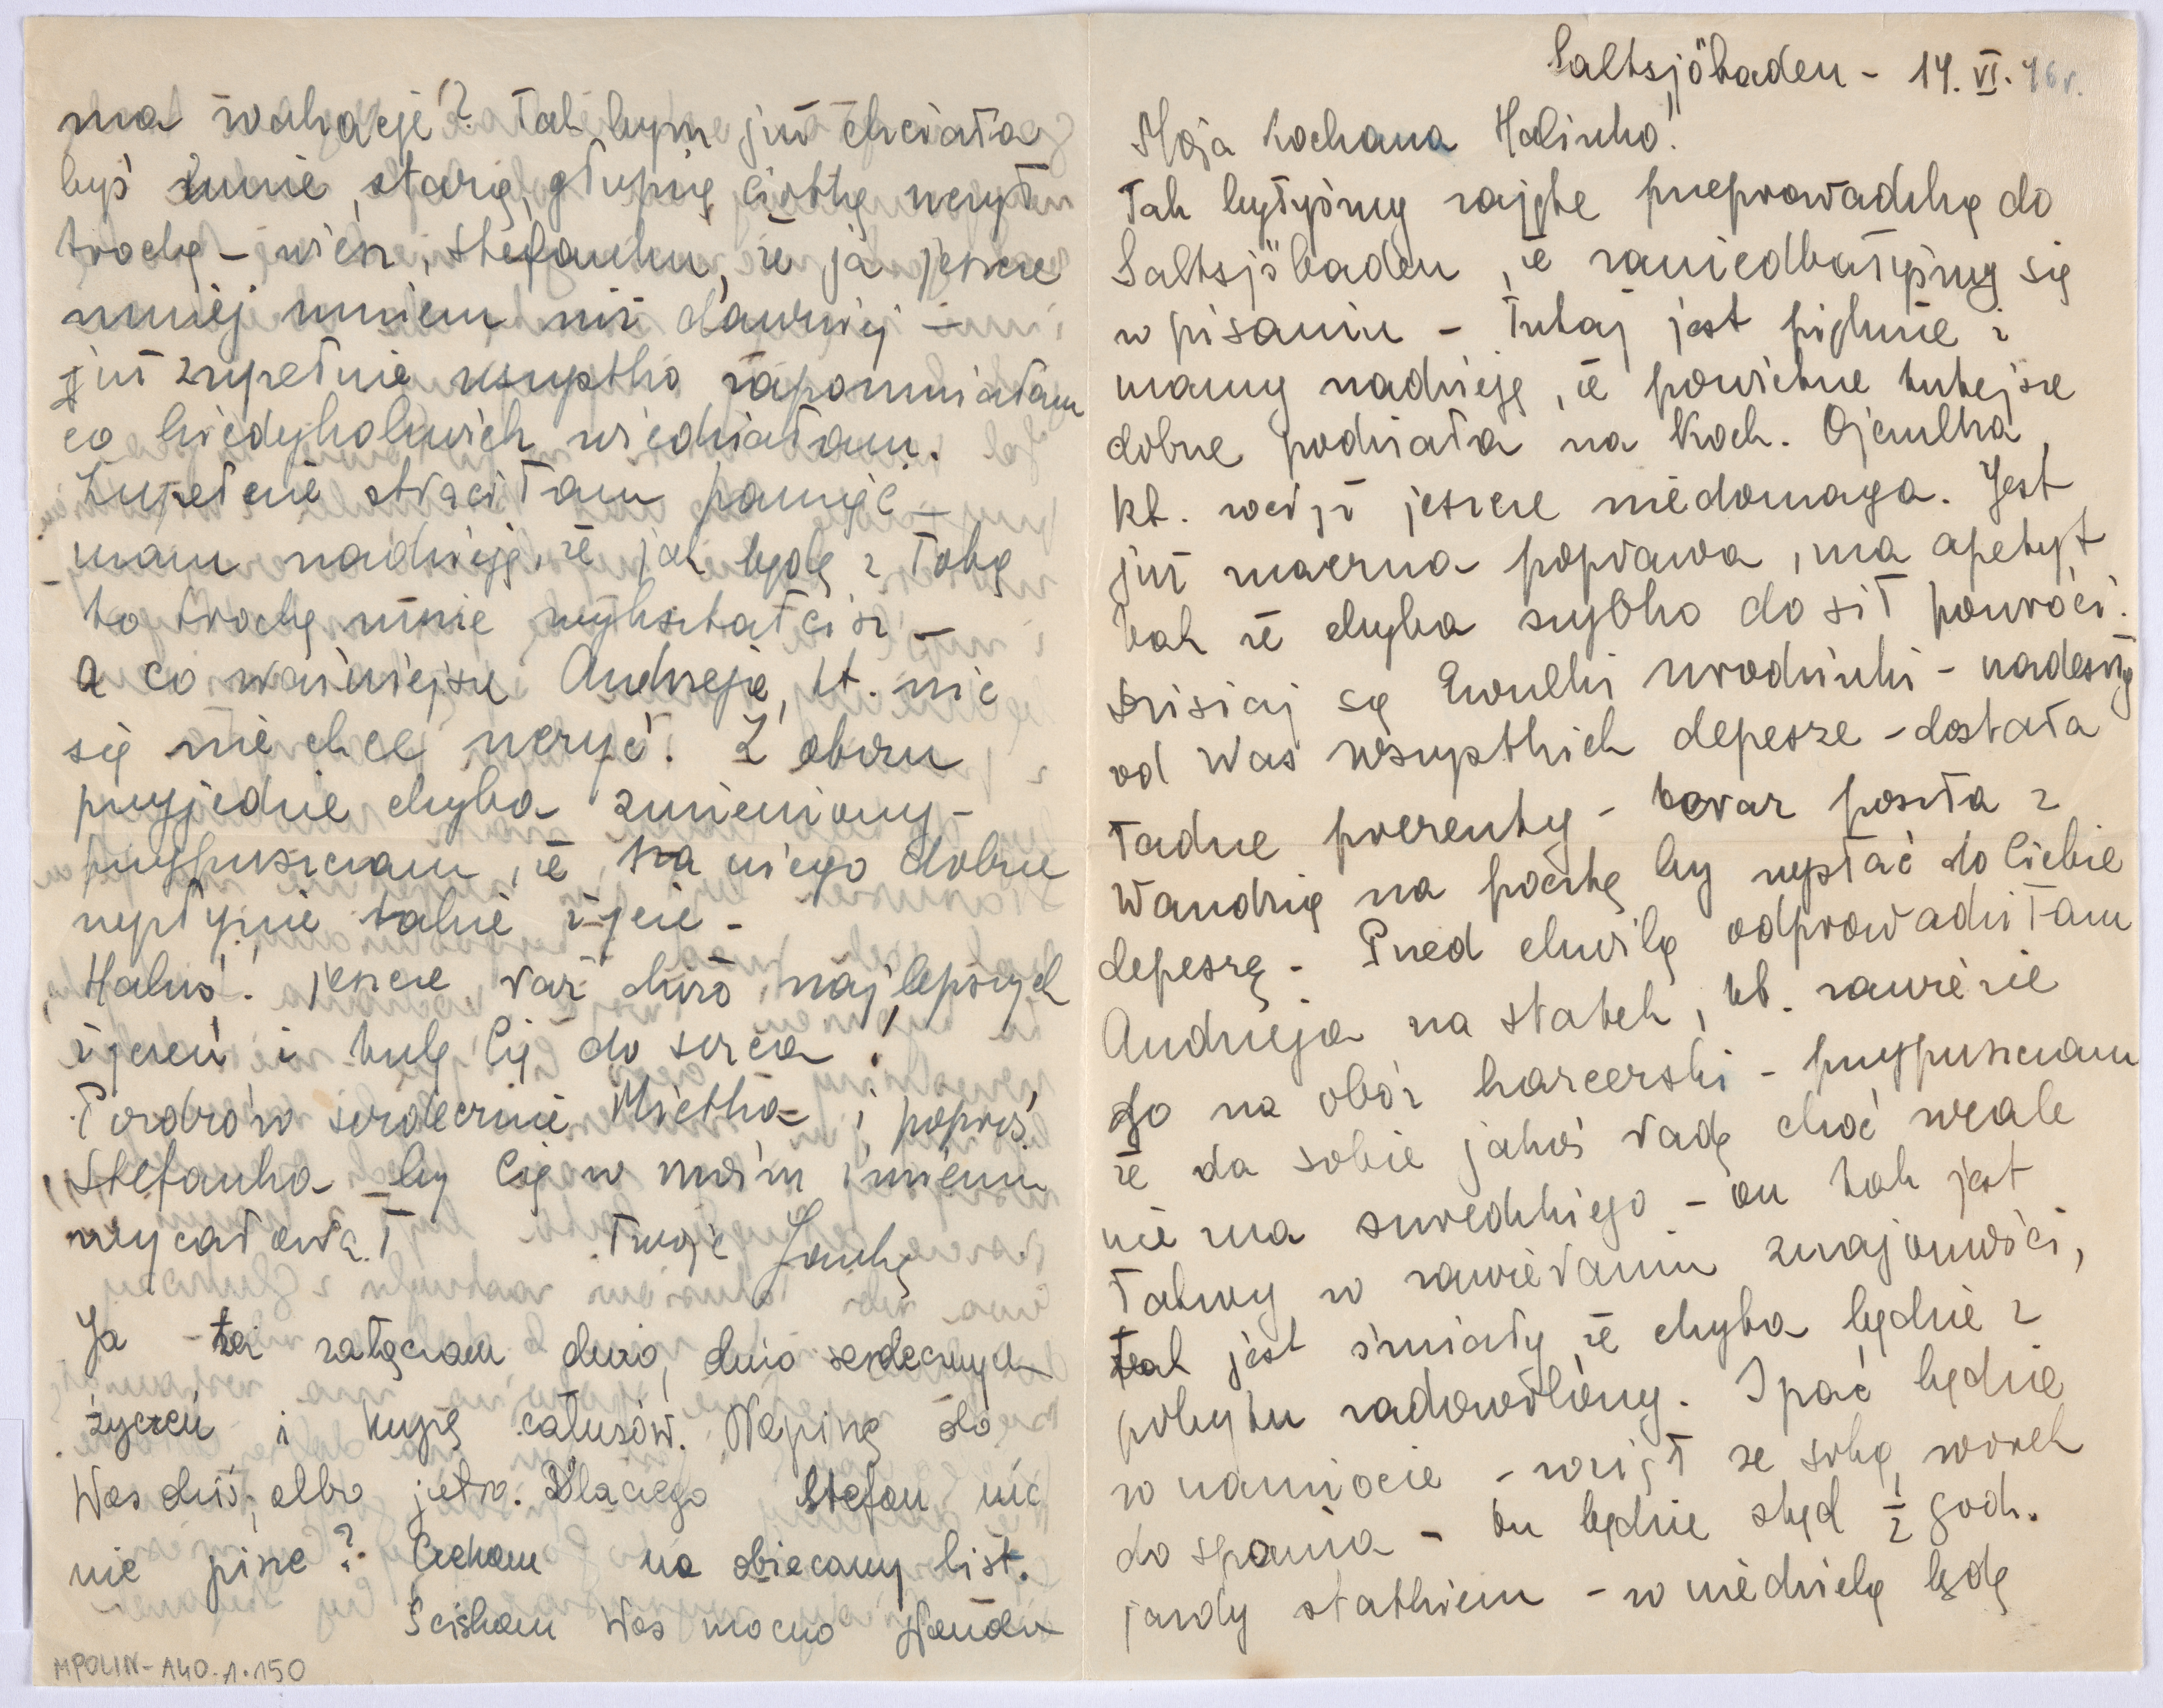 Saltsjöbaden - 14. VI. 46 r.
Moja kochana Halinko!
Tak byłyśmy zajęte przeprowadzką do
Saltsjöbaden, że zaniedbałyśmy się
w pisaniu - Tutaj jest pięknie i
mamy nadzieję, że powietrze tutejsze
dobrze podziała na Koch. Ojczulka
kt. wciąż jeszcze niedomaga. Jest
już znaczna poprawa, ma apetyt
tak że chyba szybko do sił powróci.
Dzisiaj są Ewulki urodzinki - nadeszły
od Was wszystkich depesze - dostała
ładne prezenty - teraz poszła z
Wandzią na pocztę by wysłać do Ciebie
depeszę - Przed chwilą odprowadziłam
Andrzeja na statek, kt. zawiezie
go na obóz harcerski - przypuszczam
że da sobie jakoś radę choć wcale
nie zna szwedzkiego - on tak jest
łatwy w zawieraniu znajomości,
tak jest śmiały że chyba będzie z
pobytu zadowolony. Spać będzie
w namiocie - wziął ze sobą worek
do spania - on będzie stąd ½ godz.
jazdy statkiem - w niedzielę będę
ma wakacje? Tak bym już chciała
byś mnie, starą, głupią ciotkę uczył
trochę - wiesz, Stefanku, że ja jeszcze
mniej umiem niż dawniej -
już zupełnie wszystko zapomniałam
co kiedykolwiek wiedziałam.
Zupełnie straciłam pamięć -
mam nadzieję, że jak będę z Tobą
to trochę mnie wykształcisz -
a co ważniejsze Andrzeja, kt. nic
się nie chce uczyć. Z obozu
przyjedzie chyba zmieniony -
przypuszczam, że na niego dobrze
wpłynie takie życie -
Haluś! jeszcze raz dużo najlepszych
życzeń i tulę Cię do serca!
Pozdrów serdecznie Mietka i poproś
Stefanka by Cię w moim imieniu
wycałował. Twoja Janka
Ja też załączam dużo, dużo serdecznych
życzeń i kupę całusów. Napiszę do
Was dziś, albo jutro. Dlaczego Stefan nic
nie pisze? Czekam na obiecany list.
Ściskam Was mocno Wanda
MPOLIN-A40.1.150